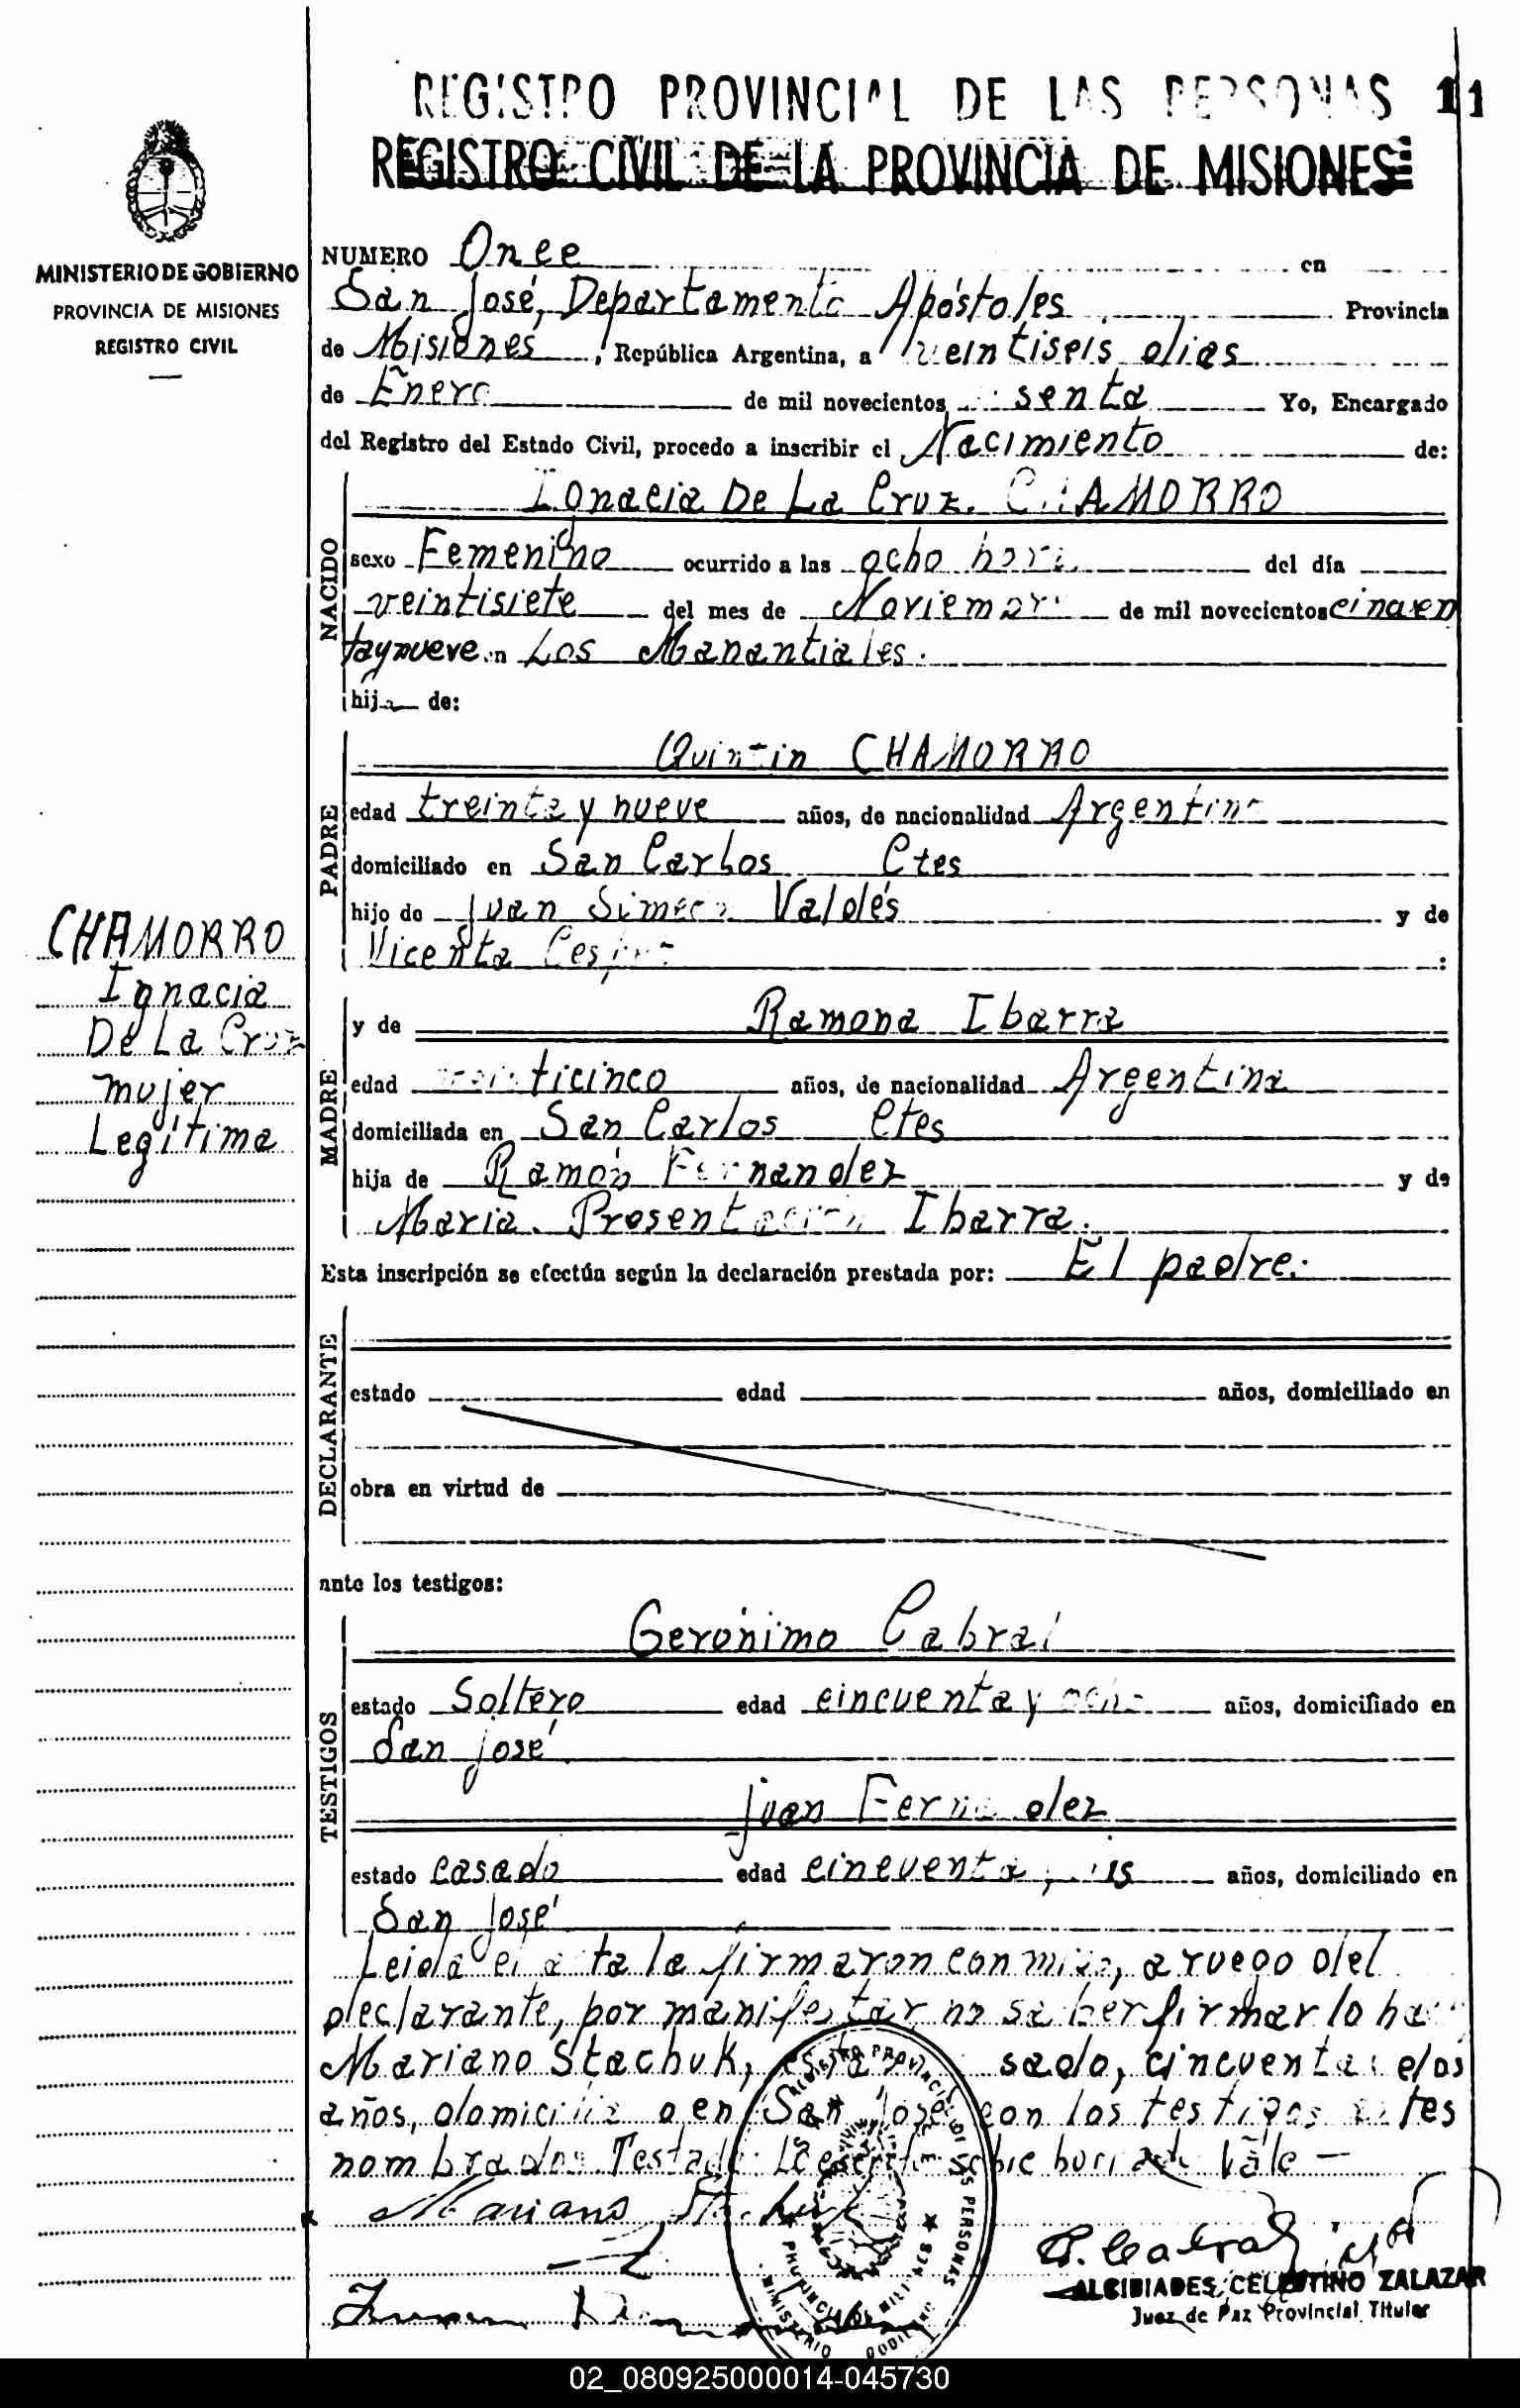 REGISTRO PROVINCIAL DE LAS PERSONAS 11
REGISTRO CIVIL DE LA PROVINCIA DE MISIONES
MINISTERIO DE GOBIERNO
PROVINCIA DE MISIONES
REGISTRO CIVIL
NUMERO Once en
San José, Departamento Apóstoles Provincia
de Misiones, República Argentina, a veintiseis dias
de Enero de mil novecientos senta Yo, Encargado
del Registro del Estado Civil, procedo a inscribir el Nacimiento de:
NACIDO
Ignacia De La Cruz CHAMORRO
sexo Femenino ocurrido a las ocho hora del día
veintisiete del mes de Noviembre de mil novecientos cincuen
taynueve en Los Manantiales.
hija de:
PADRE
Quintin CHAMORRO
edad treinta y nueve años, de nacionalidad Argentina
domiciliado en San Carlos Ctes
hijo de Juan Simeon Valdés y de
Vicenta
MADRE
y de Ramona Ibarra
edad veinticinco años, de nacionalidad Argentina
domiciliada en San Carlos Ctes
hija de Ramón Fernandez y de
Maria Presentación Ibarra.
CHAMORRO
Ignacia
De La Cruz
mujer
Legítima
Esta inscripción se efectúa según la declaración prestada por: El padre.
DECLARANTE
estado edad años, domiciliado en
obra en virtud de
ante los testigos:
TESTIGOS
Gerónimo Cabral
estado Soltero edad cincuenta y ocho años, domiciliado en
San José
Juan Fernandez
estado casado edad cincuenta años, domiciliado en
San José
Leida el acta la firmaron conmigo, a ruego del
declarante, por manifestar no saber firmar lo hace
Mariano Stachuk, sado, cincuenta dos
años, domicilia o en San José con los testigos antes
nombrados. Testado: Lo escrito sobre borrado Vale -
Mariano Stachuk
G. Cabral
ALCIBIADES CELESTINO ZALAZAR
Juez de Paz Provincial Titular
02_080925000014-045730